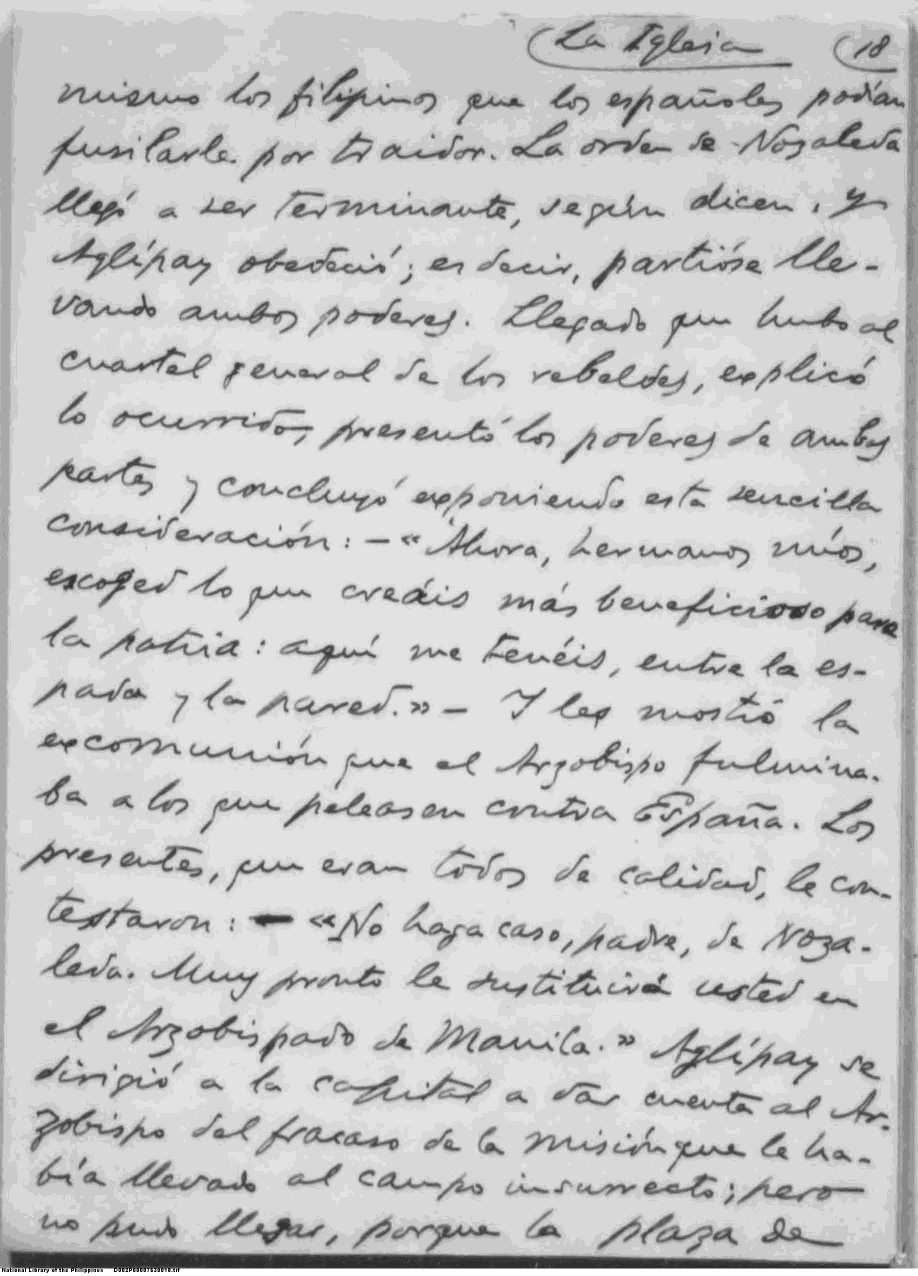 La Iglesia 18
mismo los filipinos que los españoles podían
fusilarle por traidor. La orden de Nozaleda
llegó a ser terminante, según dicen, y
Aglípay obedeció; es decir, partióse lle-
vando ambos poderes. Llegado que hubo al
cuartel general de los rebeldes, explicó
lo ocurrido, presentó los poderes de ambas
partes y concluyó exponiendo esta sencilla
consideración: — «Ahora, hermanos míos,
escoged lo que creáis más beneficioso para
la patria: aquí me tenéis, entre la es-
pada y la pared.» — Y les mostró la
excomunión que el Arzobispo fulmina-
ba a los que peleasen contra España. Los
presentes, que eran todos de calidad, le con-
testaron: — «No haga caso, padre, de Noza-
leda. Muy pronto le sustituirá usted en
el Arzobispado de Manila.» Aglípay se
dirigió a la capital a dar cuenta al Ar-
zobispo del fracaso de la misión que le ha-
bía llevado al campo insurrecto; pero
no pudo llegar, porque la plaza de
National Library of the Philippines